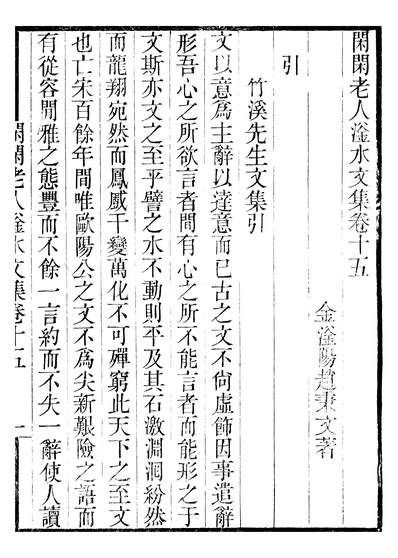 閑閑老人滏水文集卷十五
金滏陽趙秉文著
引
竹溪先生文集引
文以意為主辭以達意而已古之文不尚虛飾因事遣辭
形吾心之所欲言者間有心之所不能言者而能形之于
文斯亦文之至乎譬之水不動則平及其石激淵洄紛然
而龍翔宛然而鳳蹙千變萬化不可殫窮此天下之至文
也亡宋百餘年間唯歐陽公之文不為尖新艱險之語而
有從容閒雅之態豐而不餘一言約而不失一辭使人讀
閑閑老人滏水文集卷十五 一